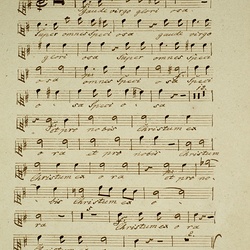 Gaude virgo glori osa
Super omnes speci osa gaude virgo
glori osa Super omnes speci
osa omnes speci osa speci
o sa speci o sa
et pro nobis Christum ex
o ra et pro nobis Christum
Christum ex o ra et pro no
bis Christum ex o
ra Christum ex o ra